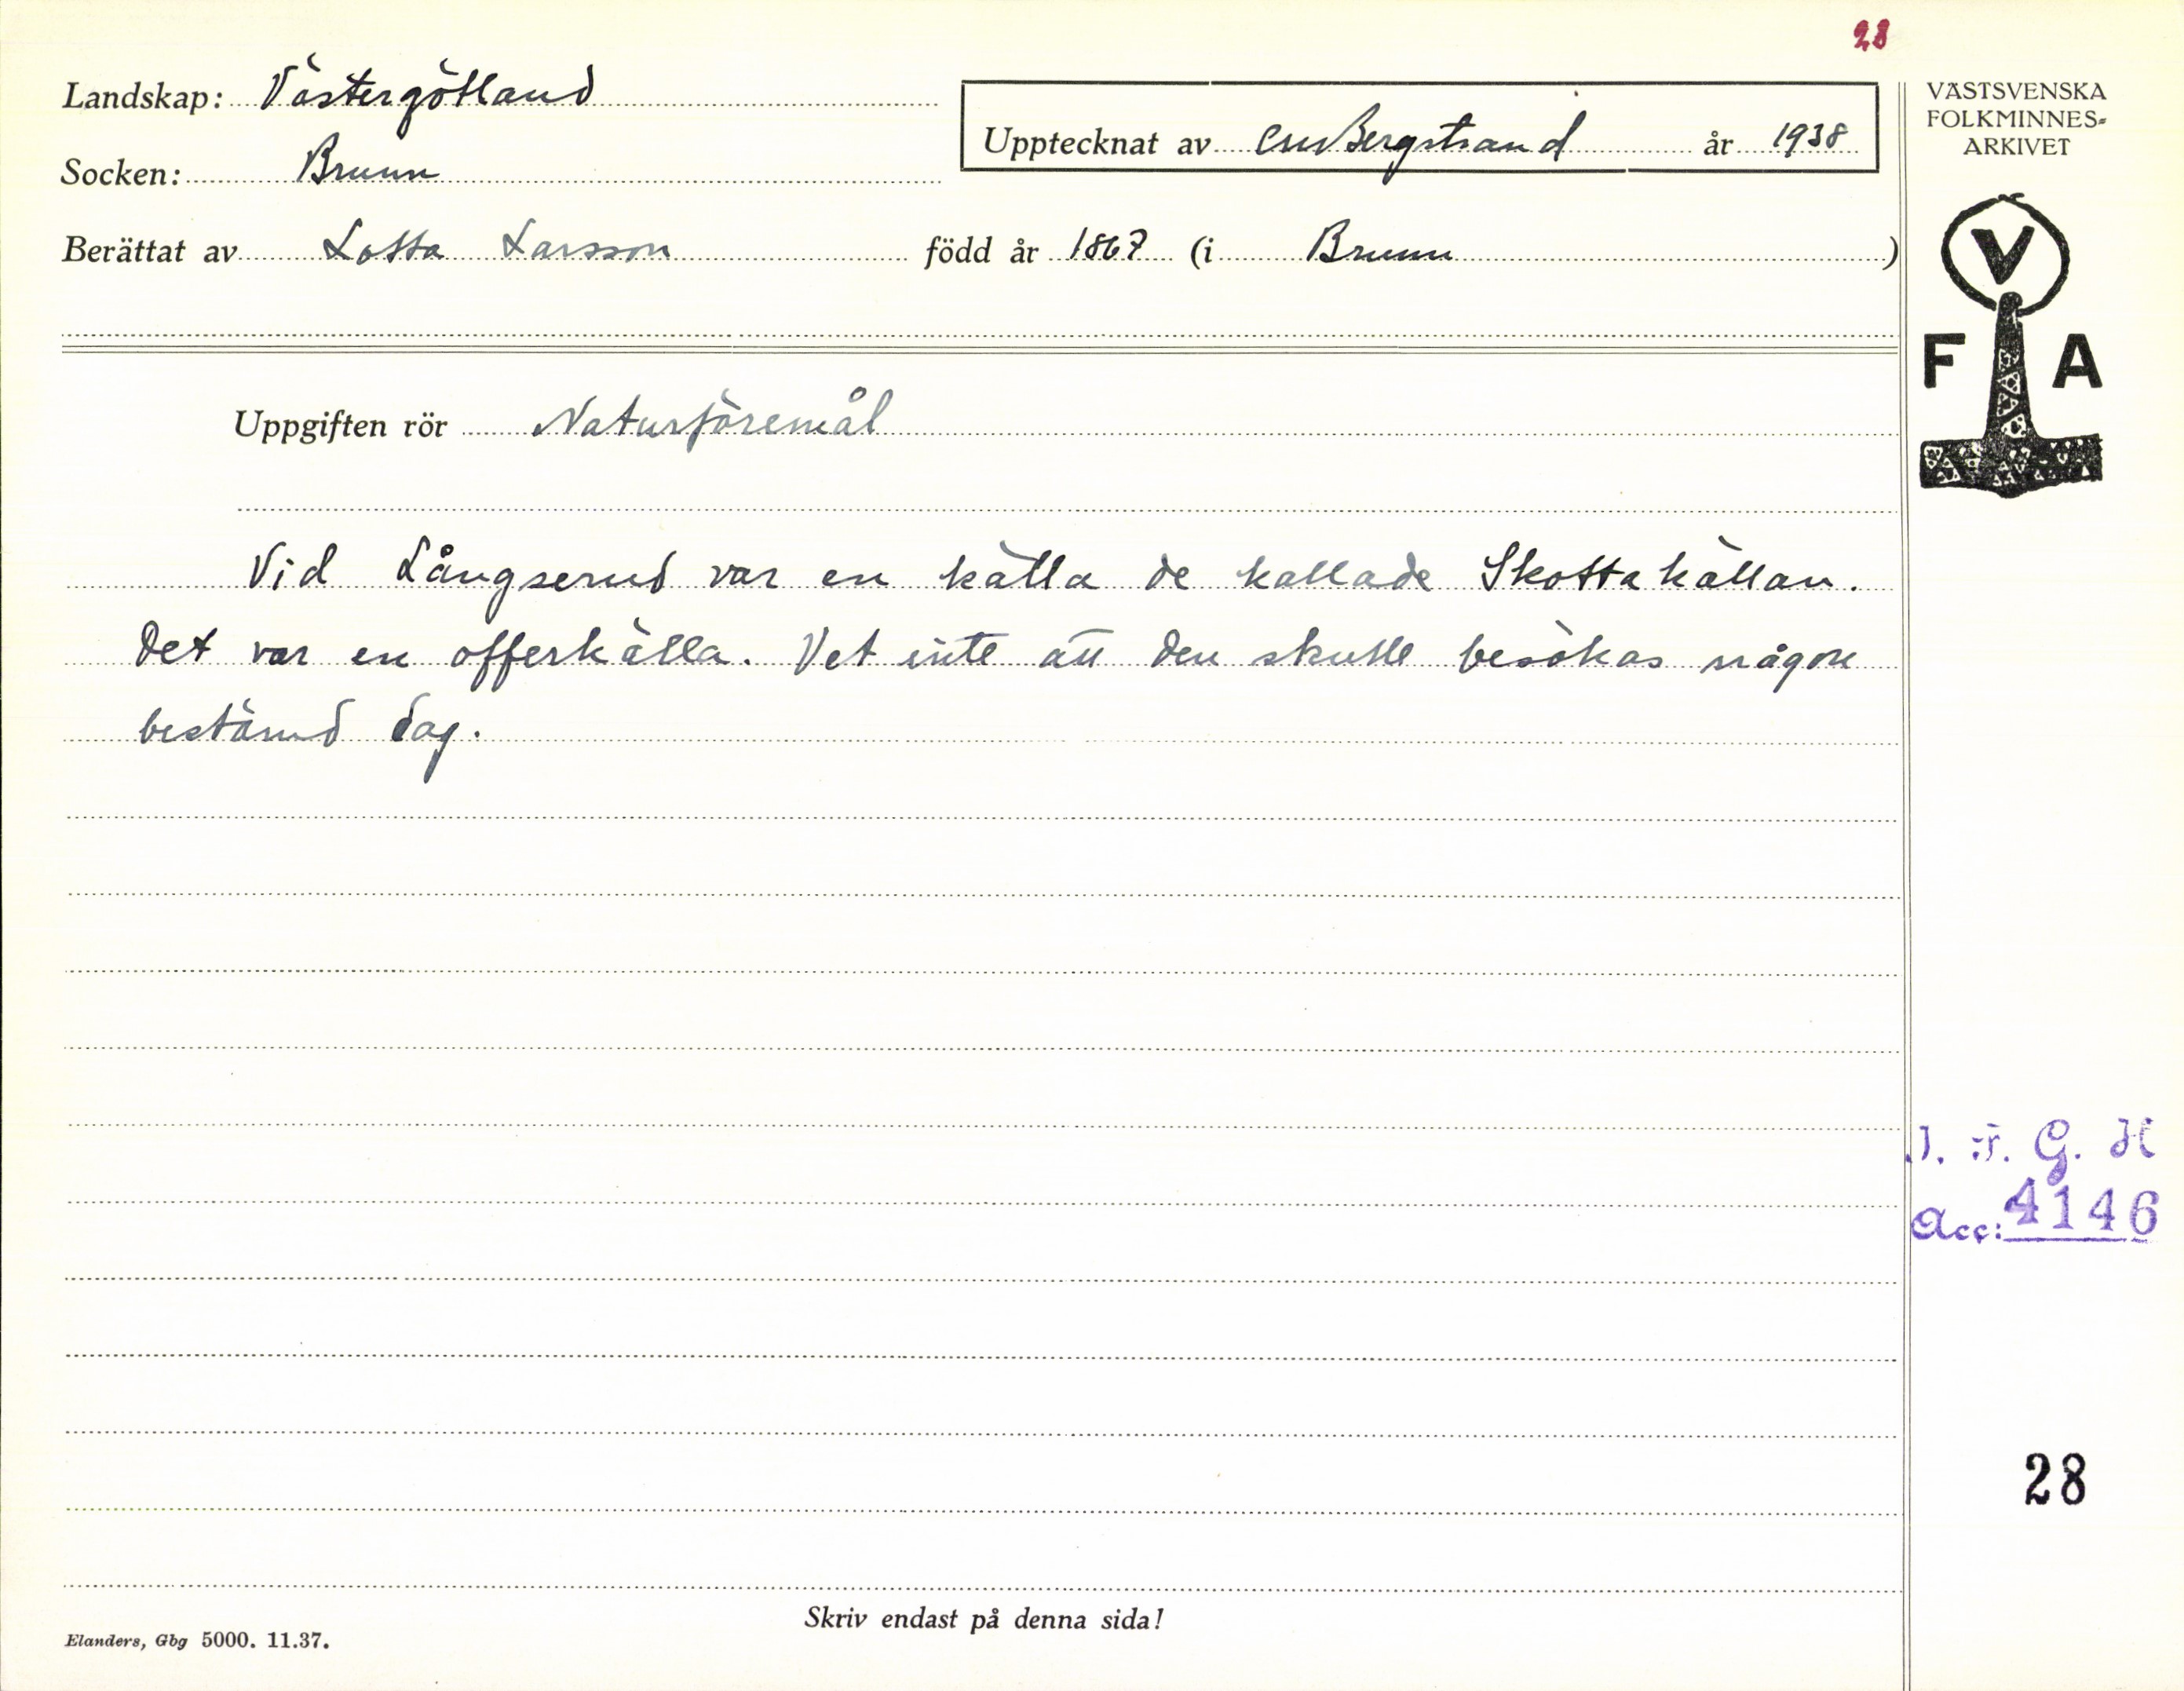 28
Landskap: Västergötland
Upptecknat av CMBergstrand år 1938
Socken: Brunn
Berättat av Lotta Larsson född år 1867 (i Brunn)
VÄSTSVENSKA
FOLKMINNES=
ARKIVET
V
F A
Uppgiften rör Naturföremål
Vid Långserud var en källa de kallade Skottakällan.
Det var en offerkälla. Vet inte att den skulle besökas någon
bestämd dag.
I. F. G. H
Acc: 4146
28
Skriv endast på denna sida!
Elanders, Gbg 5000. 11.37.